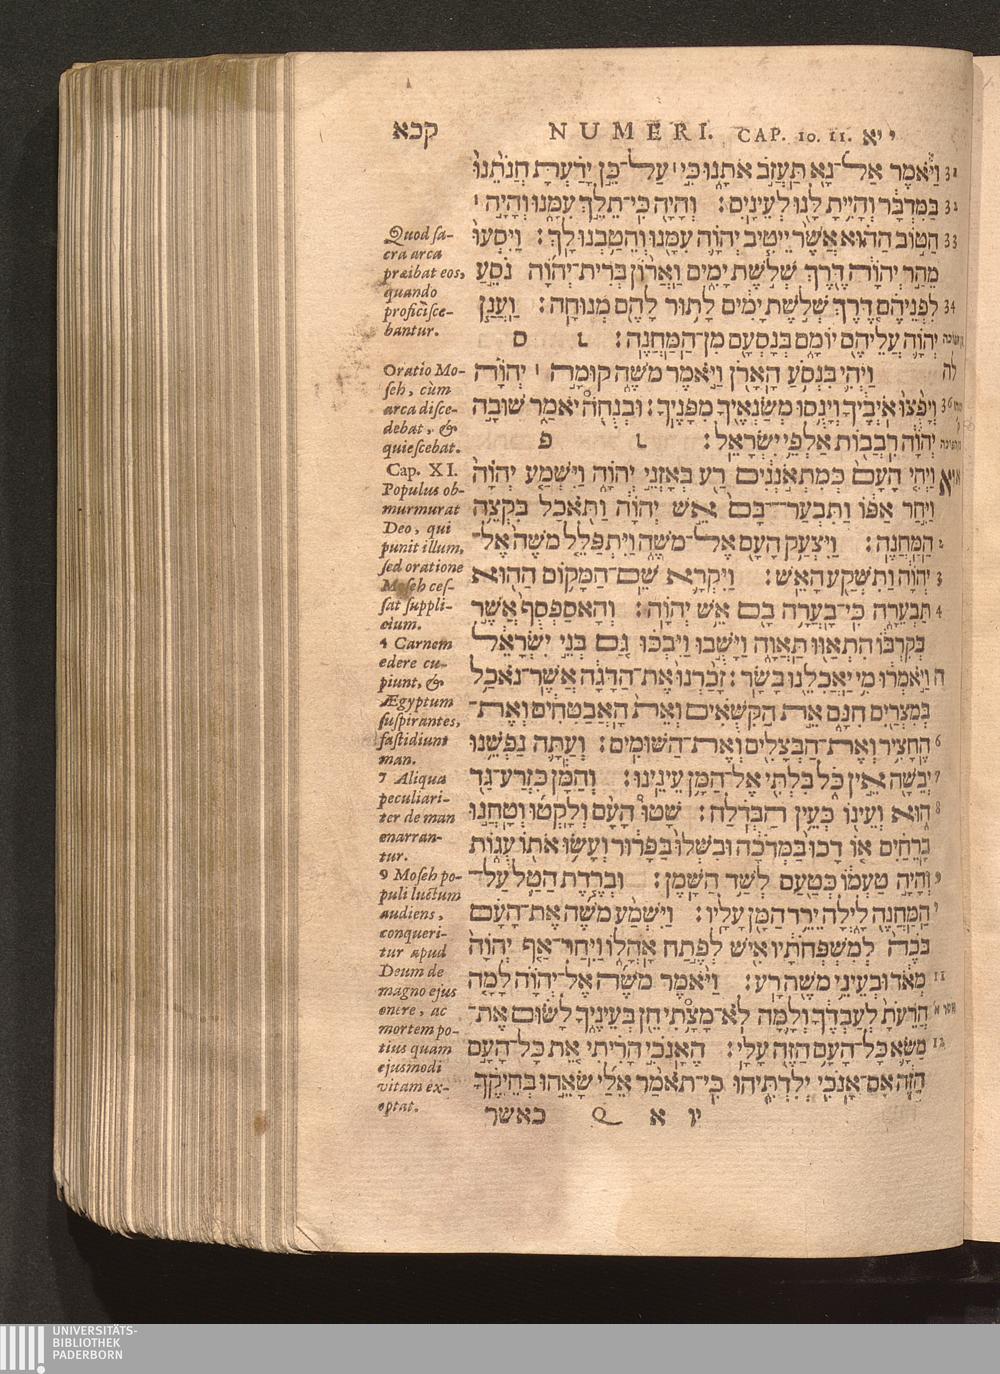 קכא NUMERI. CAP. 10. 11. י יא
וַיֹּאמֶר אַל־נָא תַּעֲזֹב אֹתָנוּ כִּי ׀ עַל־כֵּן יָדַעְתָּ חֲנֹתֵנוּ 31
בַּמִּדְבָּר וְהָיִיתָ לָּנוּ לְעֵינָיִם׃ וְהָיָה כִּי־תֵלֵךְ עִמָּנוּ וְהָיָה ׀ 32
הַטּוֹב הַהוּא אֲשֶׁר יֵיטִיב יְהוָה עִמָּנוּ וְהֵטַבְנוּ לָךְ׃ וַיִּסְעוּ 33
מֵהַר יְהוָה דֶּרֶךְ שְׁלֹשֶׁת יָמִים וַאֲרוֹן בְּרִית־יְהוָה נֹסֵעַ
לִפְנֵיהֶם דֶּרֶךְ שְׁלֹשֶׁת יָמִים לָתוּר לָהֶם מְנוּחָה׃ וַעֲנַן 34
יְהוָה עֲלֵיהֶם יוֹמָם בְּנָסְעָם מִן־הַמַּחֲנֶה׃ ס
וַיְהִי בִּנְסֹעַ הָאָרֹן וַיֹּאמֶר מֹשֶׁה קוּמָה ׀ יְהוָה לה
וְיָפֻצוּ אֹיְבֶיךָ וְיָנֻסוּ מְשַׂנְאֶיךָ מִפָּנֶיךָ׃ וּבְנֻחֹה יֹאמַר שׁוּבָה 36
יְהוָה רִבֲבוֹת אַלְפֵי יִשְׂרָאֵל׃ פ
וַיְהִי הָעָם כְּמִתְאֹנְנִים רַע בְּאָזְנֵי יְהוָה וַיִּשְׁמַע יְהוָה יא
וַיִּחַר אַפּוֹ וַתִּבְעַר־בָּם אֵשׁ יְהוָה וַתֹּאכַל בִּקְצֵה
הַמַּחֲנֶה׃ וַיִּצְעַק הָעָם אֶל־מֹשֶׁה וַיִּתְפַּלֵּל מֹשֶׁה אֶל־ 2
יְהוָה וַתִּשְׁקַע הָאֵשׁ׃ וַיִּקְרָא שֵׁם־הַמָּקוֹם הַהוּא 3
תַּבְעֵרָה כִּי־בָעֲרָה בָם אֵשׁ יְהוָה׃ וְהָאסַפְסֻף אֲשֶׁר 4
בְּקִרְבּוֹ הִתְאַוּוּ תַּאֲוָה וַיָּשֻׁבוּ וַיִּבְכּוּ גַּם בְּנֵי יִשְׂרָאֵל
וַיֹּאמְרוּ מִי יַאֲכִלֵנוּ בָּשָׂר׃ זָכַרְנוּ אֶת־הַדָּגָה אֲשֶׁר־נֹאכַל ה
בְּמִצְרַיִם חִנָּם אֵת הַקִּשֻּׁאִים וְאֵת הָאֲבַטִּחִים וְאֶת־
הֶחָצִיר וְאֶת־הַבְּצָלִים וְאֶת־הַשּׁוּמִים׃ וְעַתָּה נַפְשֵׁנוּ 6
יְבֵשָׁה אֵין כֹּל בִּלְתִּי אֶל־הַמָּן עֵינֵינוּ׃ וְהַמָּן כִּזְרַע־גַּד 7
הוּא וְעֵינוֹ כְּעֵין הַבְּדֹלַח׃ שָׁטוּ הָעָם וְלָקְטוּ וְטָחֲנוּ 8
בָרֵחַיִם אוֹ דָכוּ בַּמְּדֹכָה וּבִשְּׁלוּ בַּפָּרוּר וְעָשׂוּ אֹתוֹ עֻגוֹת
וְהָיָה טַעְמוֹ כְּטַעַם לְשַׁד הַשָּׁמֶן׃ וּבְרֶדֶת הַטַּל עַל־ 9
הַמַּחֲנֶה לָיְלָה יֵרֵד הַמָּן עָלָיו׃ וַיִּשְׁמַע מֹשֶׁה אֶת־הָעָם י
בֹּכֶה לְמִשְׁפְּחֹתָיו אִישׁ לְפֶתַח אָהֳלוֹ וַיִּחַר־אַף יְהוָה
מְאֹד וּבְעֵינֵי מֹשֶׁה רָע׃ וַיֹּאמֶר מֹשֶׁה אֶל־יְהוָה לָמָה 11
הֲרֵעֹתָ לְעַבְדֶּךָ וְלָמָּה לֹא־מָצָתִי חֵן בְּעֵינֶיךָ לָשׂוּם אֶת־
מַשָּׂא כָּל־הָעָם הַזֶּה עָלָי׃ הֶאָנֹכִי הָרִיתִי אֵת כָּל־הָעָם 12
הַזֶּה אִם־אָנֹכִי יְלִדְתִּיהוּ כִּי־תֹאמַר אֵלַי שָׂאֵהוּ בְחֵיקֶךָ
יו א Q כאשר
Quod sa-
cra arca
præibat eos,
quando
proficisce-
bantur.
Oratio Mo-
seh, cùm
arca disce-
debat, &
quiescebat.
Cap. XI.
Populus ob-
murmurat
Deo, qui
punit illum,
sed oratione
Moseh ces-
sat suppli-
cium.
4 Carnem
edere cu-
piunt, &
Ægyptum
suspirantes,
fastidiunt
man.
7 Aliqua
peculiari-
ter de man
enarran-
tur.
9 Moseh po-
puli luctum
audiens,
conqueri-
tur apud
Deum de
magno ejus
onere, ac
mortem po-
tius quam
ejusmodi
vitam ex-
optat.
UNIVERSITÄTS-
BIBLIOTHEK
PADERBORN